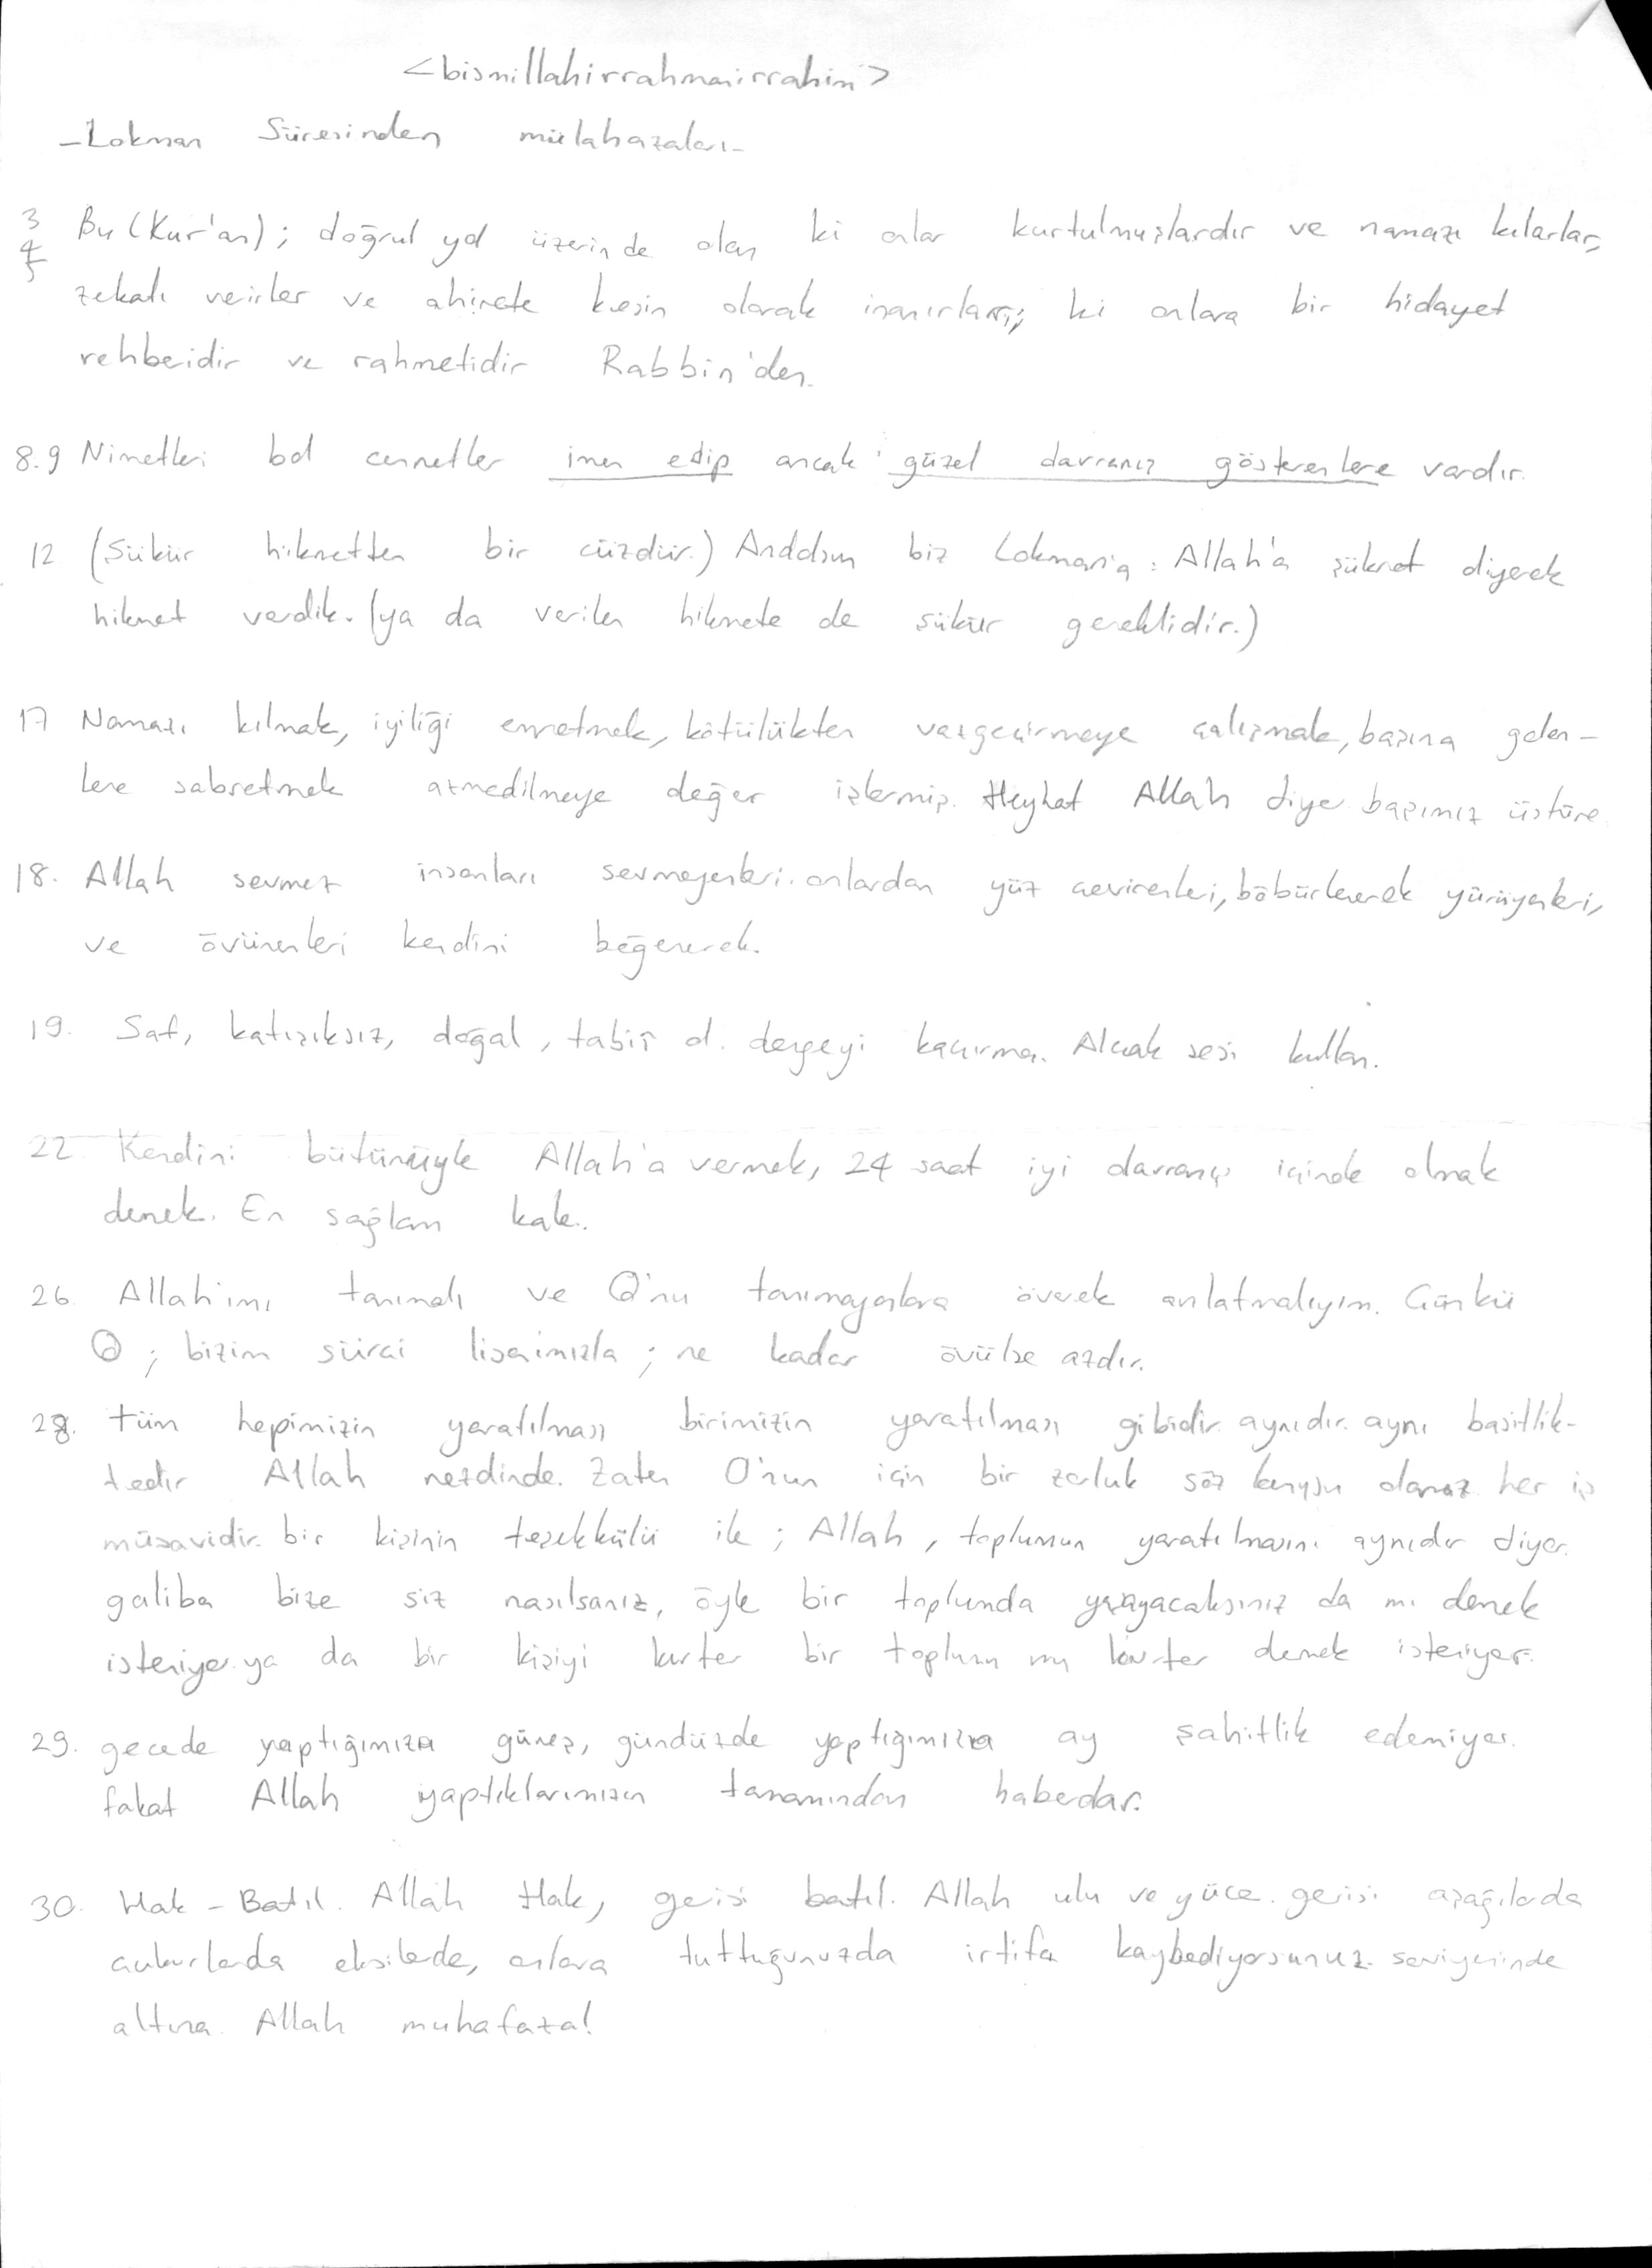 <bismillahirrahmanirrahim>
-Lokman Süresinden mülahazaları-
3 Bu (Kur'an); doğrul yol üzerinde olan ki onlar kurtulmuşlardır ve namazı kılarlar,
4
5 zekatı verirler ve ahirete kesin olarak inanırlar; ki onlara bir hidayet
rehberidir ve rahmetidir Rabbin'den.
8.9 Nimetleri bol cennetler iman edip ancak güzel davranış gösterenlere vardır.
12 (Şükür hikmetten bir cüzdür.) Andolsun biz Lokman'a: Allah'a şükret diyerek
hikmet verdik. (ya da verilen hikmete de şükür gereklidir.)
17 Namazı kılmak, iyiliği emretmek, kötülükten vazgeçirmeye çalışmak, başına gelen-
lere sabretmek azmedilmeye değer işlermiş. Heyhat Allah diye başımız üstüne.
18. Allah sevmez insanları sevmeyenleri. onlardan yüz çevirenleri, böbürlenerek yürüyenleri,
ve övünenleri kendini beğenerek.
19. Saf, katışıksız, doğal, tabiî ol. dengeyi kaçırma. Alçak sesi kullan.
22. Kendini bütünüyle Allah'a vermek, 24 saat iyi davranış içinde olmak
demek. En sağlam kale.
26. Allah'ımı tanımalı ve O'nu tanımayanlara överek anlatmalıyım. Çünkü
O; bizim sürçi lisanımızla; ne kadar övülse azdır.
28. tüm hepimizin yaratılması birimizin yaratılması gibidir. aynıdır. aynı basitlik-
tedir Allah nezdinde. Zaten O'nun için bir zorluk söz konusu olamaz her iş
müsavidir. bir kişinin teşekkülü ile; Allah, toplumun yaratılmasını aynıdır diyor.
galiba bize siz nasılsanız, öyle bir toplumda yaşayacaksınız da mı demek
isteniyor. ya da bir kişiyi kurtar bir toplumu mu kurtar demek isteniyor.
29. gecede yaptığımıza güneş, gündüzde yaptığımıza ay şahitlik edemiyor.
fakat Allah yaptıklarımızın tamamından haberdar.
30. Hak - Batıl. Allah Hak, gerisi batıl. Allah ulu ve yüce. gerisi aşağılarda
çukurlarda eksilerde, onlara tuttuğunuzda irtifa kaybediyorsunuz. seviyesinde
altına. Allah muhafaza!